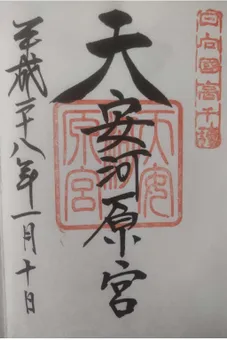 日向國高千穂
天安河原宮
平成二十八年一月十日